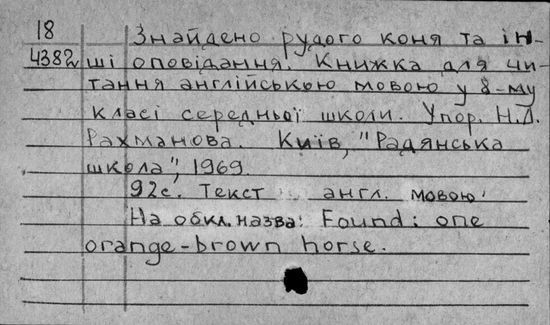 18 Знайдено рудого коня та ін-
4382 ші оповідання. Книжка для чи-
тання англійською мовою у 8-му
класі середньої школи. Упор. Н.Д.
Рахманова. Київ, "Радянська
школа", 1969.
92с. Текст англ. мовою.
На обкл. назва: Found: one
orange-brown horse.